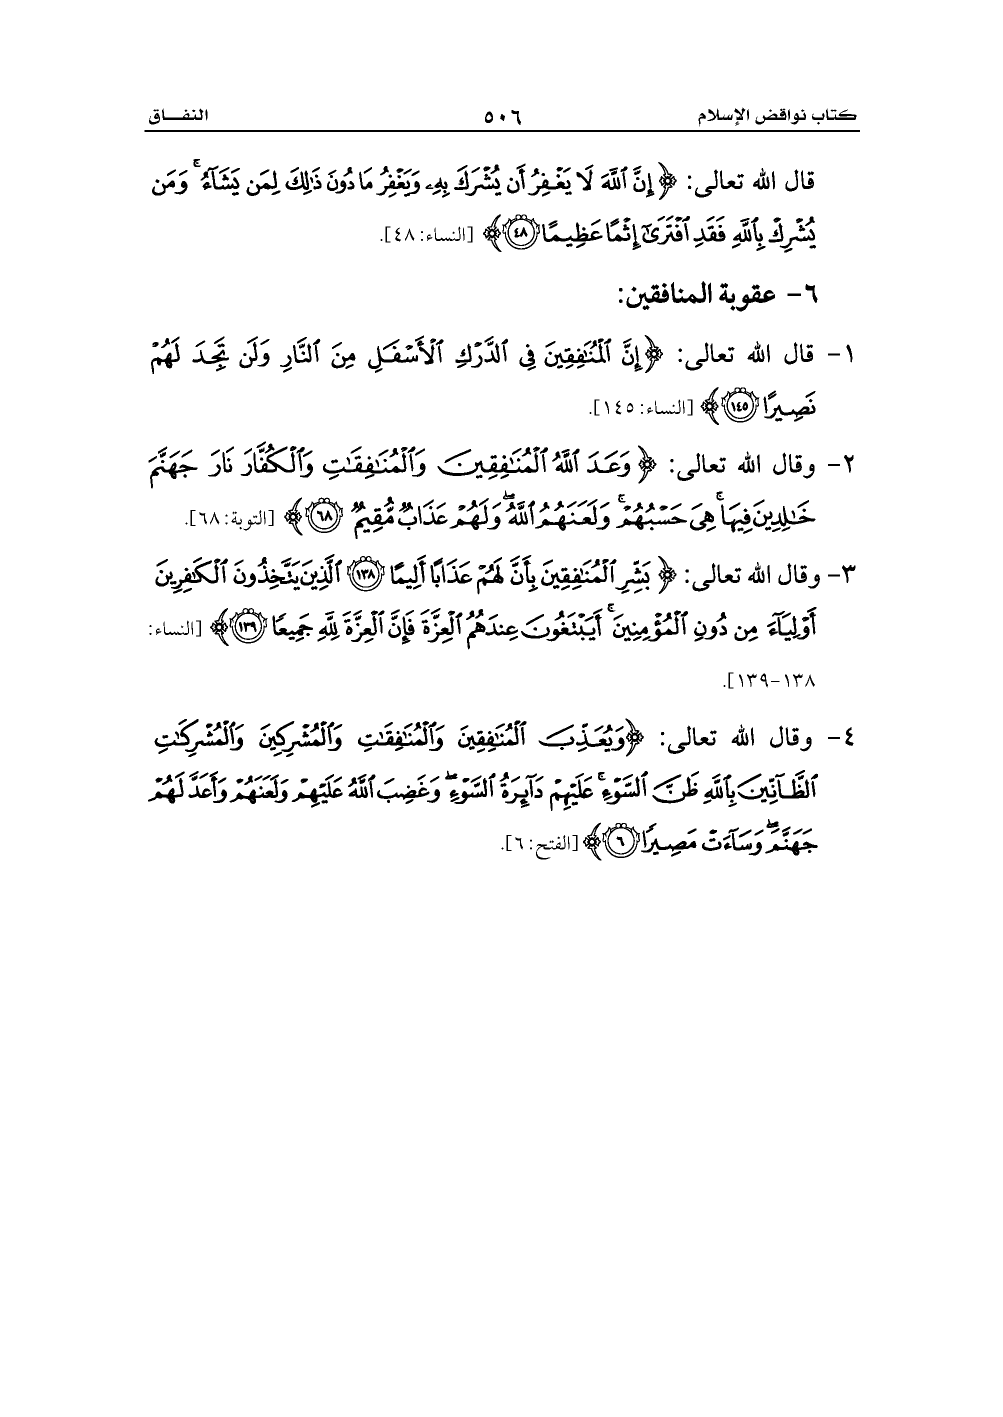 كتاب نواقض الإسلام ٥٠٦ النفــاق
قال الله تعالى: ﴿إِنَّ ٱللَّهَ لَا يَغْفِرُ أَن يُشْرَكَ بِهِۦ وَيَغْفِرُ مَا دُونَ ذَٰلِكَ لِمَن يَشَآءُ ۚ وَمَن
يُشْرِكْ بِٱللَّهِ فَقَدِ ٱفْتَرَىٰٓ إِثْمًا عَظِيمًا ٤٨﴾ [النساء: ٤٨].
٦- عقوبة المنافقين:
١- قال الله تعالى: ﴿إِنَّ ٱلْمُنَٰفِقِينَ فِى ٱلدَّرْكِ ٱلْأَسْفَلِ مِنَ ٱلنَّارِ وَلَن تَجِدَ لَهُمْ
نَصِيرًا ١٤٥﴾ [النساء: ١٤٥].
٢- وقال الله تعالى: ﴿وَعَدَ ٱللَّهُ ٱلْمُنَٰفِقِينَ وَٱلْمُنَٰفِقَٰتِ وَٱلْكُفَّارَ نَارَ جَهَنَّمَ
خَٰلِدِينَ فِيهَا ۚ هِىَ حَسْبُهُمْ ۚ وَلَعَنَهُمُ ٱللَّهُ ۖ وَلَهُمْ عَذَابٌ مُّقِيمٌ ٦٨﴾ [التوبة: ٦٨].
٣- وقال الله تعالى: ﴿بَشِّرِ ٱلْمُنَٰفِقِينَ بِأَنَّ لَهُمْ عَذَابًا أَلِيمًا ١٣٨ ٱلَّذِينَ يَتَّخِذُونَ ٱلْكَٰفِرِينَ
أَوْلِيَآءَ مِن دُونِ ٱلْمُؤْمِنِينَ ۚ أَيَبْتَغُونَ عِندَهُمُ ٱلْعِزَّةَ فَإِنَّ ٱلْعِزَّةَ لِلَّهِ جَمِيعًا ١٣٩﴾ [النساء:
١٣٨-١٣٩].
٤- وقال الله تعالى: ﴿وَيُعَذِّبَ ٱلْمُنَٰفِقِينَ وَٱلْمُنَٰفِقَٰتِ وَٱلْمُشْرِكِينَ وَٱلْمُشْرِكَٰتِ
ٱلظَّآنِّينَ بِٱللَّهِ ظَنَّ ٱلسَّوْءِ ۚ عَلَيْهِمْ دَآئِرَةُ ٱلسَّوْءِ ۖ وَغَضِبَ ٱللَّهُ عَلَيْهِمْ وَلَعَنَهُمْ وَأَعَدَّ لَهُمْ
جَهَنَّمَ ۖ وَسَآءَتْ مَصِيرًا ٦﴾ [الفتح: ٦].